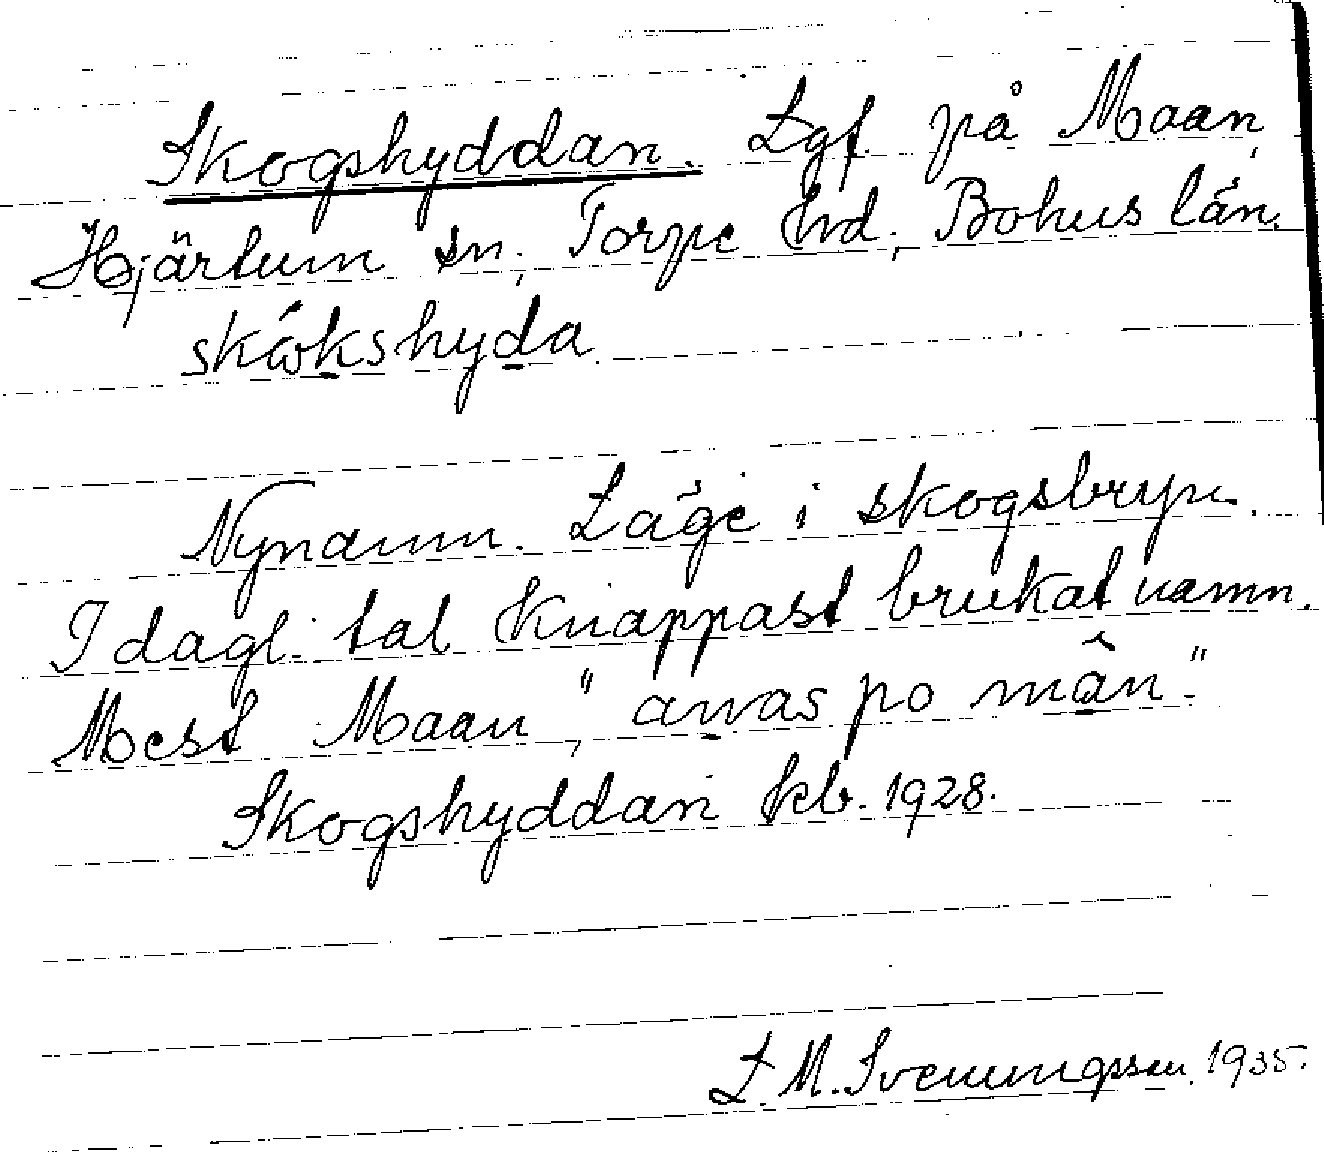 Skogshyddan. Lgf. på Maan,
Hjärtum sn, Torpe hd, Bohus län.
skókshyda
Nynamn. Läge i skogsbryn.
I dagl. tal knappast brukat namn.
Mest Maan, "annas po mân".
Skogshyddan kb. 1928.
L. M. Svenungsson. 1935.